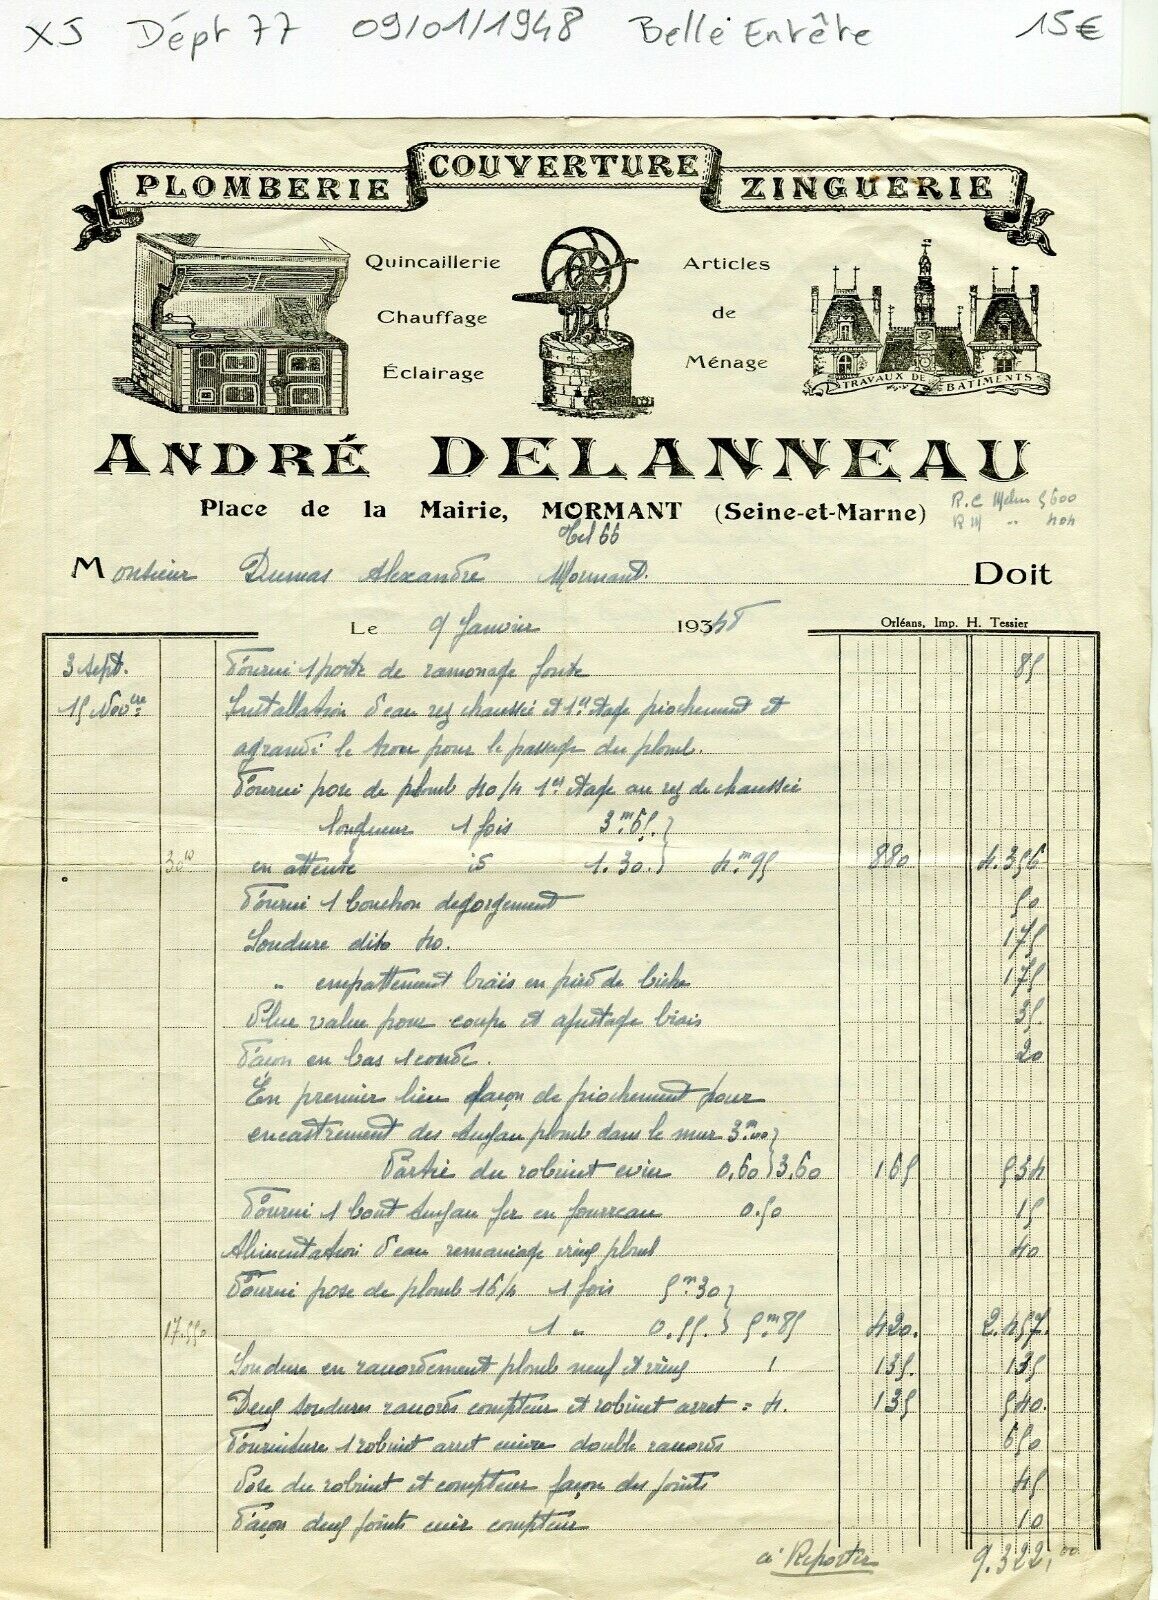 XJ Dépt 77 09/01/1948 Belle Entête 15€
PLOMBERIE COUVERTURE ZINGUERIE
Quincaillerie Articles
Chauffage de
Éclairage Ménage
TRAVAUX DE BÂTIMENTS
ANDRÉ DELANNEAU
Place de la Mairie, MORMANT (Seine-et-Marne)
R.C Melun 5600
R M " 404
Tel 66
Monsieur Dumas Alexandre Mormant. Doit
Le 9 Janvier 1948
Orléans, Imp. H. Tessier
3 Sept. Fourni 1 porte de ramonage fonte 85
15 Novbre Installation d'eau rez chaussée et 1er etage piochement et
agrandi le trou pour le passage du plomb.
Fourni pose de plomb 40/4 1er etage au rez de chaussée
longueur 1 fois 3m65.
30k en attente is 1.30. 4m95 880 4.356
Fourni 1 bouchon degorgement 50
Soudure dito 40. 175
" empattement biais en pied de biche 175
Plue value pour coupe et ajustage biais 35.
Façon en bas 1 coude. 20
En premier lieu façon de piochement pour
encastrement des tuyau plomb dans le mur 3m00
Partie du robinet evier 0.60 3.60 165 534
Fourni 1 bout tuyau fer en fourreau 0.50 15
Alimentation d'eau remaniage vieux plomb 40
Fourni pose de plomb 16/4 1 fois 5m30
17.550 1 " 0.55. 5m85 420. 2.457.
Soudure en raccordement plomb neuf et vieux 1 135. 135
Deux soudures raccords compteur et robinet arret = 4. 135 540.
Fourniture 1 robinet arret cuivre double raccords 650
Pose du robinet et compteur façon des joints 45
Façon deux joints cuir compteur 10
à Reporter 9.322,00